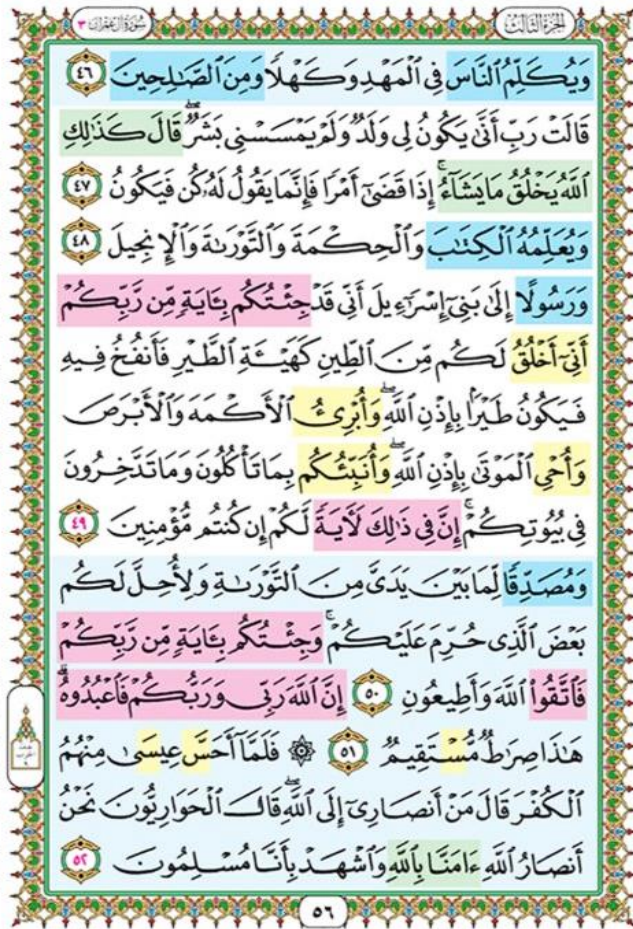 سُورَةُ آلِ عِمْرَانَ ٣
الجُزْءُ الثَّالِثُ
وَيُكَلِّمُ ٱلنَّاسَ فِي ٱلْمَهْدِ وَكَهْلًا وَمِنَ ٱلصَّٰلِحِينَ ٤٦
قَالَتْ رَبِّ أَنَّىٰ يَكُونُ لِي وَلَدٌ وَلَمْ يَمْسَسْنِي بَشَرٌ ۖ قَالَ كَذَٰلِكِ
ٱللَّهُ يَخْلُقُ مَا يَشَآءُ ۚ إِذَا قَضَىٰٓ أَمْرًا فَإِنَّمَا يَقُولُ لَهُۥ كُن فَيَكُونُ ٤٧
وَيُعَلِّمُهُ ٱلْكِتَٰبَ وَٱلْحِكْمَةَ وَٱلتَّوْرَىٰةَ وَٱلْإِنجِيلَ ٤٨
وَرَسُولًا إِلَىٰ بَنِيٓ إِسْرَٰٓءِيلَ أَنِّي قَدْ جِئْتُكُم بِـَٔايَةٍ مِّن رَّبِّكُمْ
أَنِّيٓ أَخْلُقُ لَكُم مِّنَ ٱلطِّينِ كَهَيْـَٔةِ ٱلطَّيْرِ فَأَنفُخُ فِيهِ
فَيَكُونُ طَيْرًۢا بِإِذْنِ ٱللَّهِ ۖ وَأُبْرِئُ ٱلْأَكْمَهَ وَٱلْأَبْرَصَ
وَأُحْيِ ٱلْمَوْتَىٰ بِإِذْنِ ٱللَّهِ ۖ وَأُنَبِّئُكُم بِمَا تَأْكُلُونَ وَمَا تَدَّخِرُونَ
فِي بُيُوتِكُمْ ۚ إِنَّ فِي ذَٰلِكَ لَـَٔايَةً لَّكُمْ إِن كُنتُم مُّؤْمِنِينَ ٤٩
وَمُصَدِّقًا لِّمَا بَيْنَ يَدَيَّ مِنَ ٱلتَّوْرَىٰةِ وَلِأُحِلَّ لَكُم
بَعْضَ ٱلَّذِي حُرِّمَ عَلَيْكُمْ ۚ وَجِئْتُكُم بِـَٔايَةٍ مِّن رَّبِّكُمْ
فَٱتَّقُوا۟ ٱللَّهَ وَأَطِيعُونِ ٥٠ إِنَّ ٱللَّهَ رَبِّي وَرَبُّكُمْ فَٱعْبُدُوهُ ۗ
هَٰذَا صِرَٰطٌ مُّسْتَقِيمٌ ٥١ ۞ فَلَمَّآ أَحَسَّ عِيسَىٰ مِنْهُمُ
ٱلْكُفْرَ قَالَ مَنْ أَنصَارِيٓ إِلَى ٱللَّهِ ۖ قَالَ ٱلْحَوَارِيُّونَ نَحْنُ
أَنصَارُ ٱللَّهِ ءَامَنَّا بِٱللَّهِ وَٱشْهَدْ بِأَنَّا مُسْلِمُونَ ٥٢
٥٦